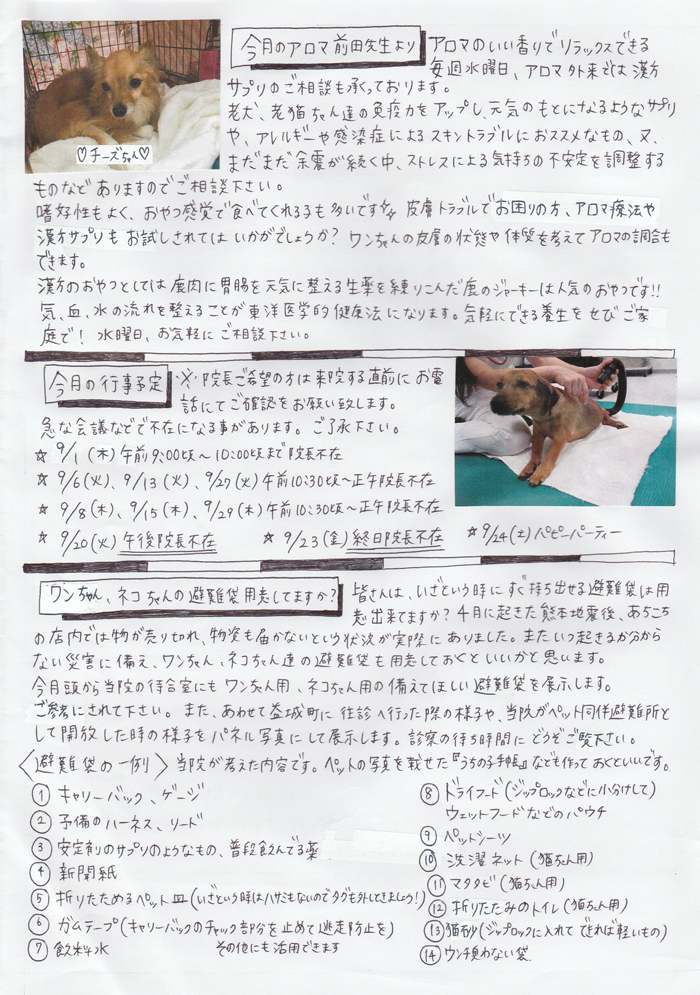 今月のアロマ 前田先生より
アロマのいい香りでリラックスできる
毎週水曜日、アロマ外来では漢方
サプリのご相談も承っております。
老犬、老猫ちゃん達の免疫力をアップし、元気のもとになるようなサプリ
や、アレルギーや感染症によるスキントラブルにおススメなもの、又、
まだまだ余震が続く中、ストレスによる気持ちの不安定を調整する
♡チーズちゃん♡
ものなどありますのでご相談下さい。
嗜好性もよく、おやつ感覚で食べてくれる子も多いです 皮膚トラブルでお困りの方、アロマ療法や
漢方サプリもお試しされてはいかがでしょうか？ ワンちゃんの皮膚の状態や体質を考えてアロマの調合も
できます。
漢方のおやつとしては鹿肉に胃腸を元気に整える生薬を練りこんだ鹿のジャーキーは人気のおやつです!!
気、血、水の流れを整えることが東洋医学的健康法になります。気軽にできる養生をぜひご家
庭で！ 水曜日、お気軽にご相談下さい。
今月の行事予定
※院長ご希望の方は来院する直前にお電
話にてご確認をお願い致します。
急な会議などで不在になる事があります。ご了承下さい。
☆ 9/1(木)午前9:00頃～10:00頃まで院長不在
☆ 9/6(火)、9/13(火)、9/27(火)午前10:30頃～正午院長不在
☆ 9/8(木)、9/15(木)、9/29(木)午前10:30頃～正午院長不在
☆ 9/20(火)午後院長不在 ☆ 9/23(金)終日院長不在 ☆ 9/24(土)パピーパーティー
ワンちゃん、ネコちゃんの避難袋用意してますか？
皆さんは、いざという時にすぐ持ち出せる避難袋は用
意出来てますか？ 4月に起きた熊本地震後、あちこち
の店内では物が売り切れ、物資も届かないという状況が実際にありました。またいつ起きるか分から
ない災害に備え、ワンちゃん、ネコちゃん達の避難袋も用意しておくといいかと思います。
今月頭から当院の待合室にもワンちゃん用、ネコちゃん用の備えてほしい避難袋を展示します。
ご参考にされて下さい。また、あわせて益城町に往診へ行った際の様子や、当院がペット同伴避難所と
して開放した時の様子をパネル写真にして展示します。診察の待ち時間にどうぞご覧下さい。
〈避難袋の一例〉当院が考えた内容です。ペットの写真を載せた『うちの子手帳』なども作っておくといいです。
① キャリーバック、ゲージ
② 予備のハーネス、リード
③ 安定剤のサプリのようなもの、普段飲んでる薬
④ 新聞紙
⑤ 折りたためるペット皿(いざという時はハサミもないのでタグも外しときましょう!)
⑥ ガムテープ(キャリーバックのチャック部分を止めて逃走防止を)
その他にも活用できます
⑦ 飲料水
⑧ ドライフード(ジップロックなどに小分けして)
ウェットフードなどのパウチ
⑨ ペットシーツ
⑩ 洗濯ネット(猫ちゃん用)
⑪ マタタビ(猫ちゃん用)
⑫ 折りたたみのトイレ(猫ちゃん用)
⑬ 猫砂(ジップロックに入れて できれば軽いもの)
⑭ ウンチ臭わない袋